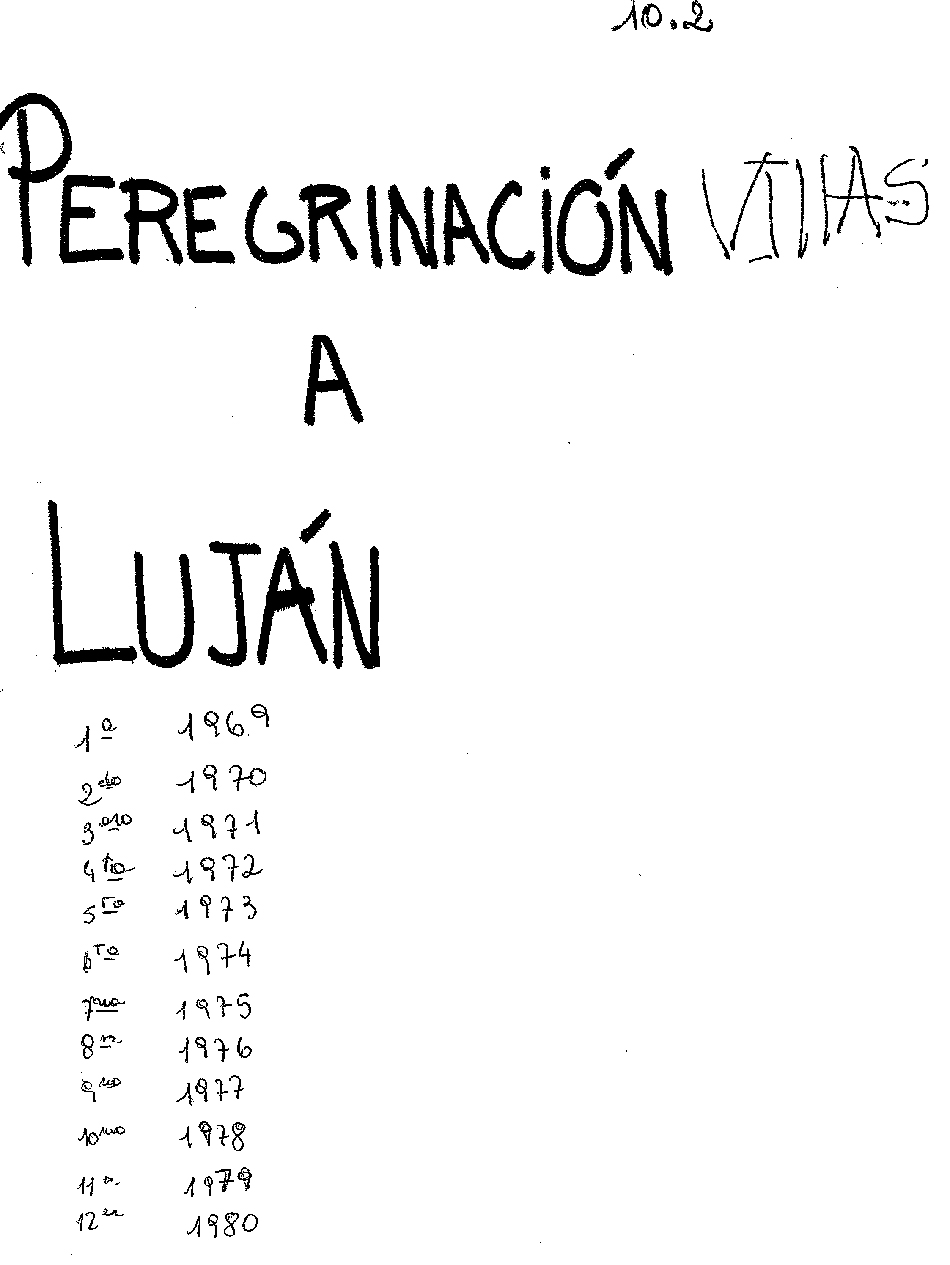 10.2
PEREGRINACIÓN VILLAS
A
LUJÁN
1º 1969
2do 1970
3ero 1971
4to 1972
5to 1973
6TO 1974
7mo 1975
8vo 1976
9no 1977
10mo 1978
11 1979
12 1980